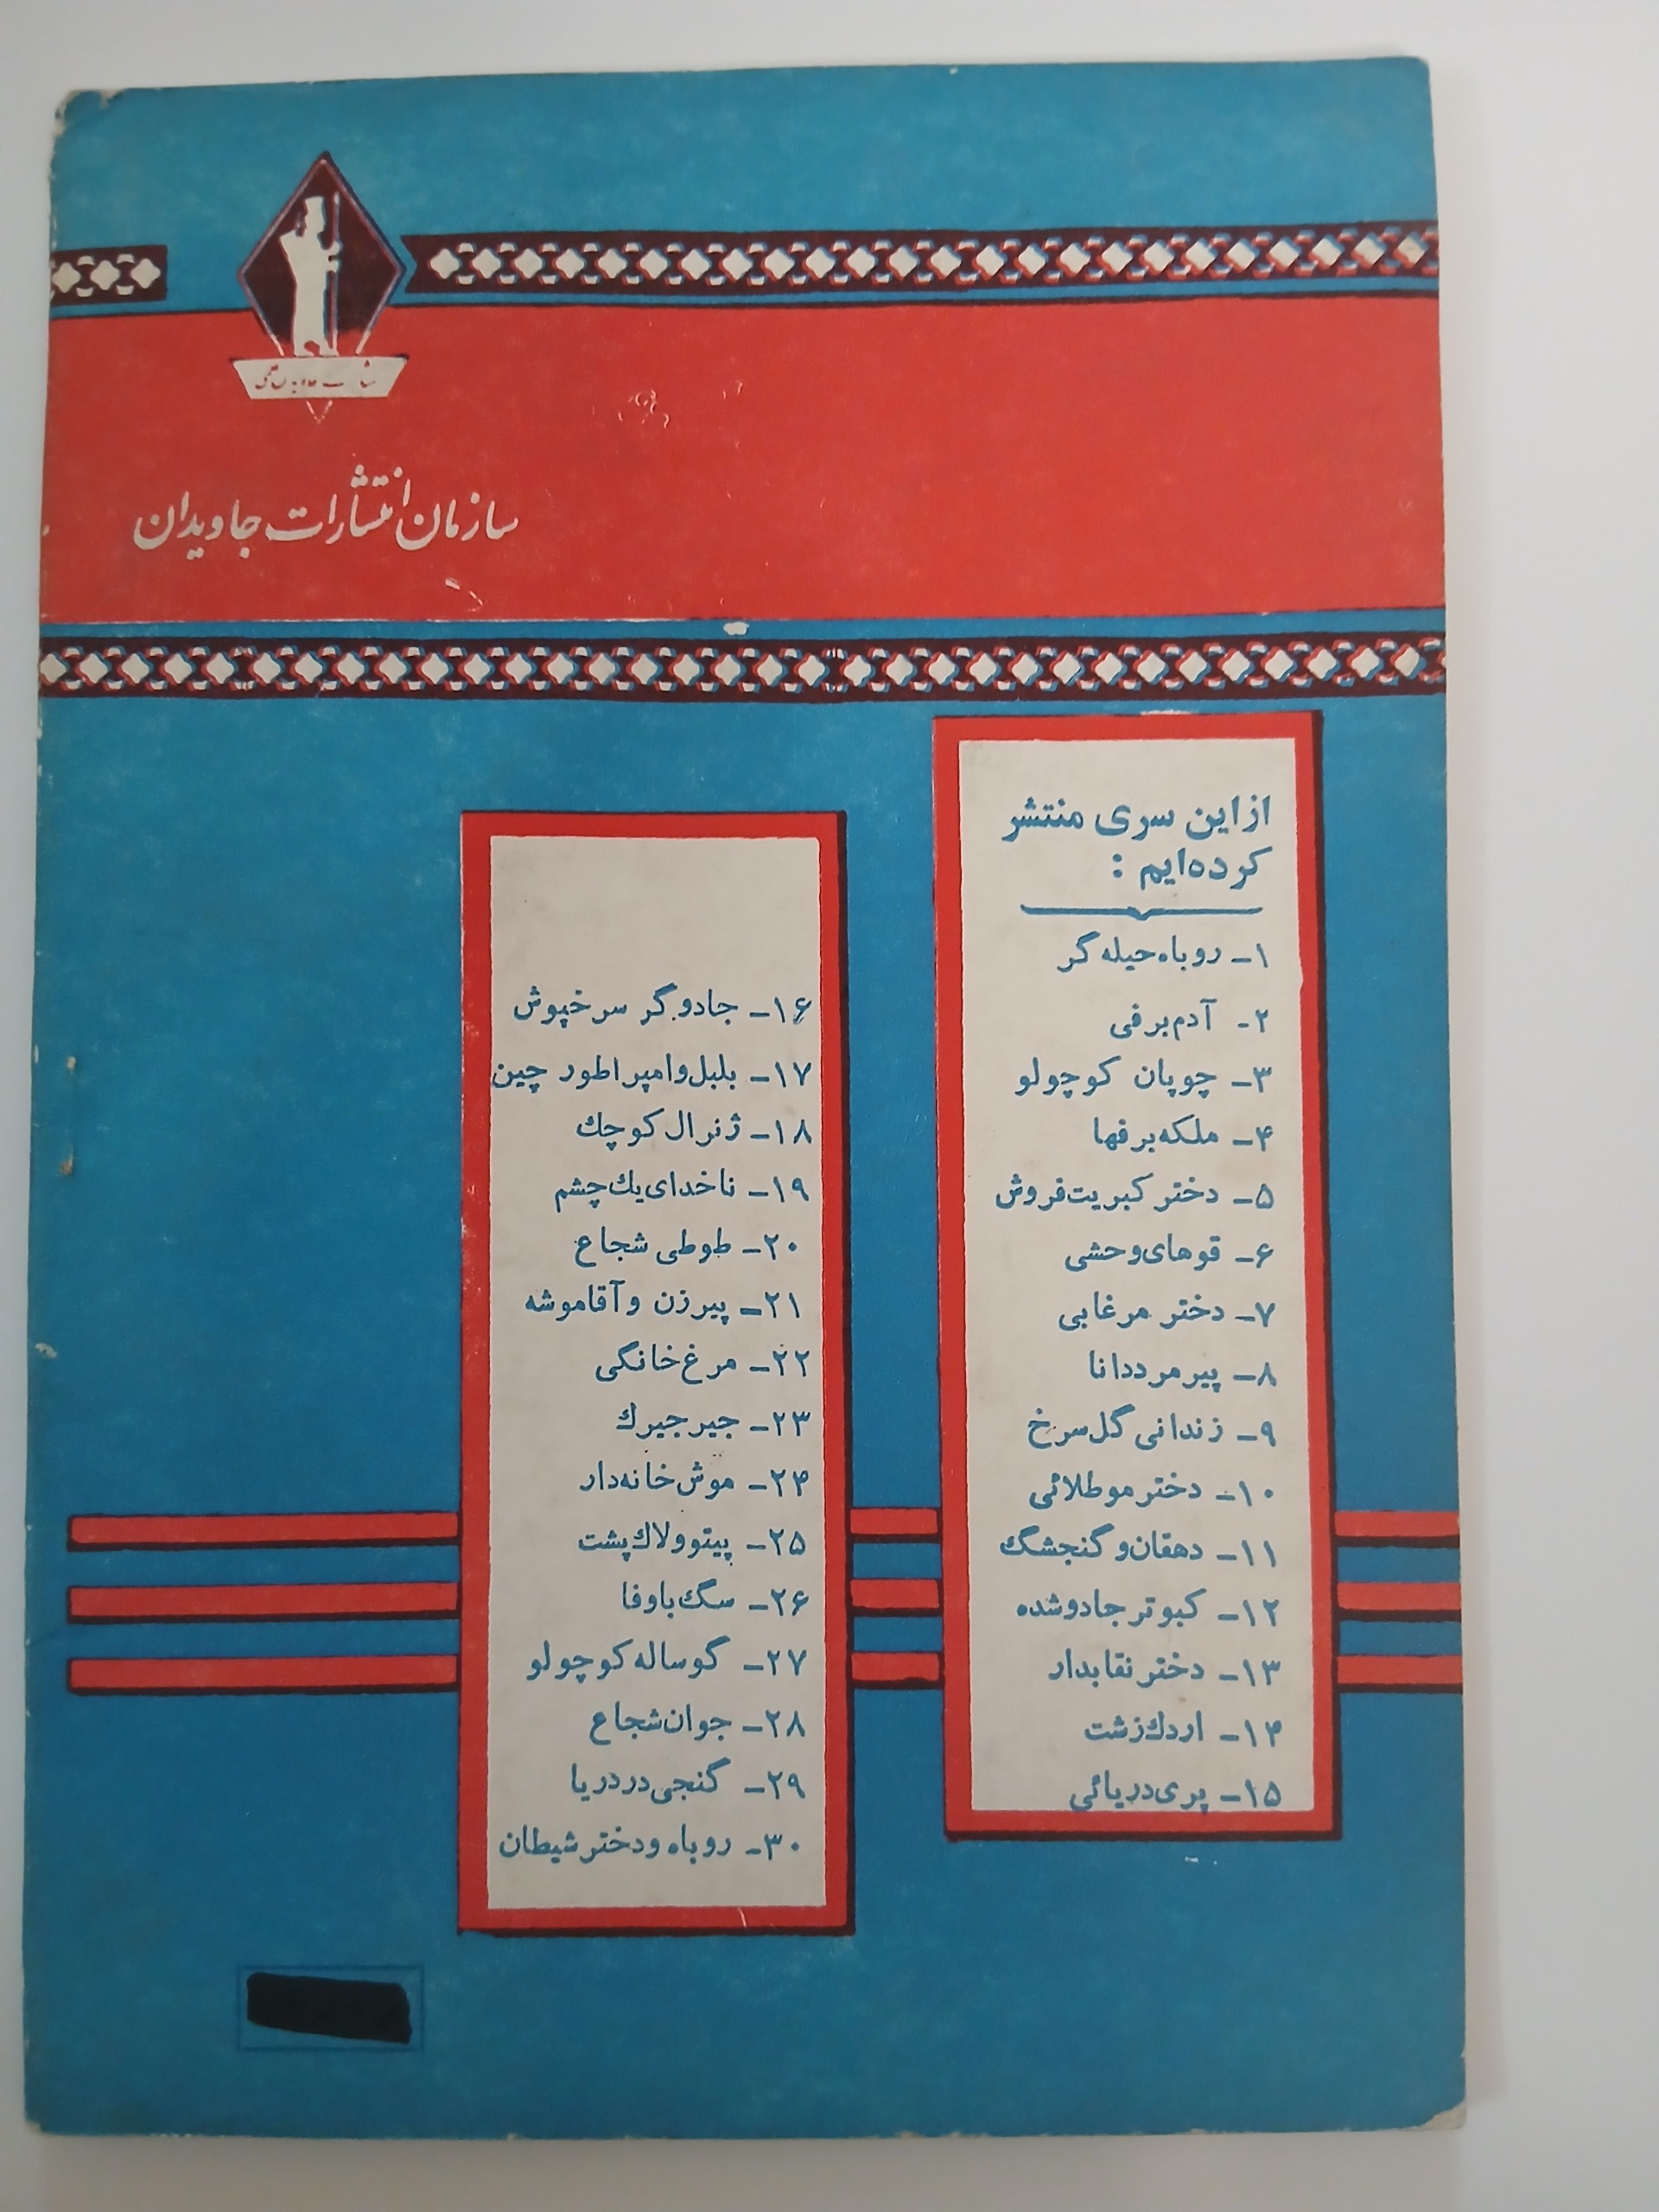 سازمان انتشارات جاویدان
از این سری منتشر
کرده‌ایم :
۱- روباه حیله‌گر
۲- آدم برفی
۳- چوپان کوچولو
۴- ملکه برفها
۵- دختر کبریت‌فروش
۶- قوهای وحشی
۷- دختر مرغابی
۸- پیرمرد دانا
۹- زندانی گل سرخ
۱۰- دختر مو طلائی
۱۱- دهقان و گنجشگ
۱۲- کبوتر جادو شده
۱۳- دختر نقابدار
۱۴- اردك زشت
۱۵- پری دریائی
۱۶- جادوگر سرخپوش
۱۷- بلبل و امپراطور چین
۱۸- ژنرال کوچك
۱۹- ناخدای یك چشم
۲۰- طوطی شجاع
۲۱- پیرزن و آقا موشه
۲۲- مرغ خانگی
۲۳- جیرجیرك
۲۴- موش خانه‌دار
۲۵- پیتو و لاك پشت
۲۶- سگ باوفا
۲۷- گوساله کوچولو
۲۸- جوان شجاع
۲۹- گنجی در دریا
۳۰- روباه و دختر شیطان